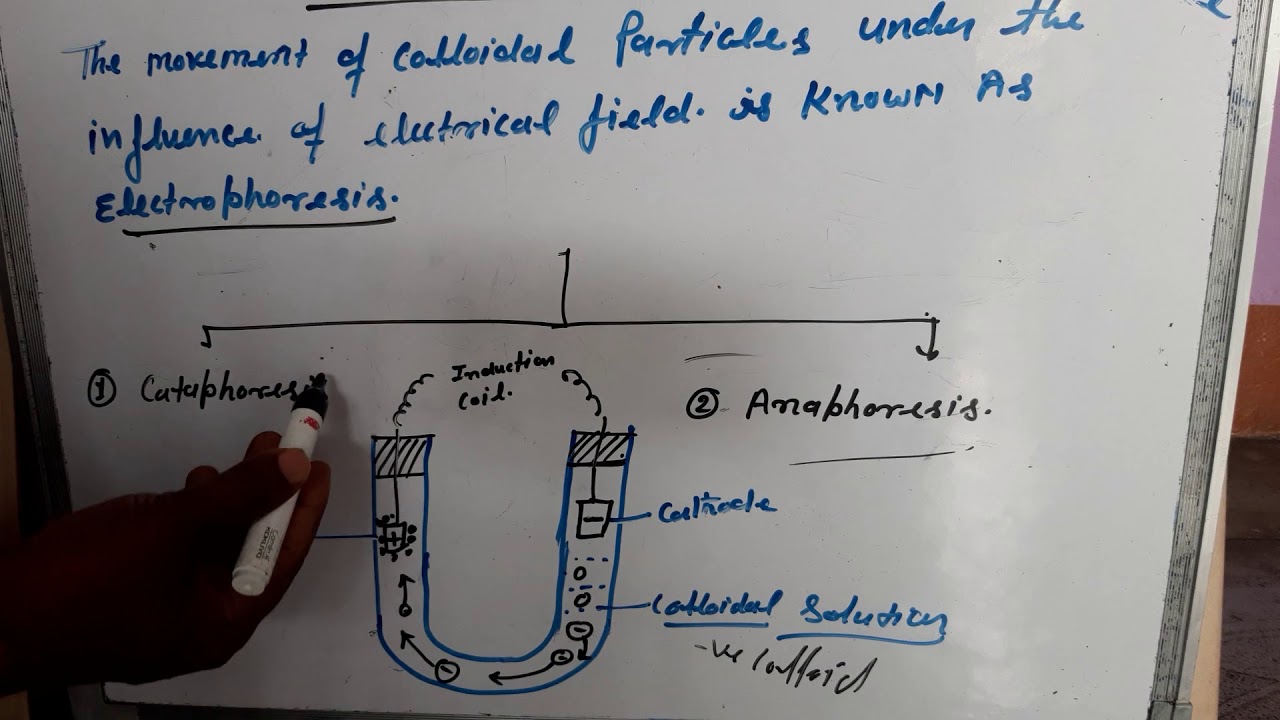 The movement of colloidal Particles under the
influence. of electrical field. is Known As
Electrophoresis.
① Cataphoresis
Induction
coil.
② Anaphoresis.
+
−
Cathode
Colloidal Solution
-ve colloid